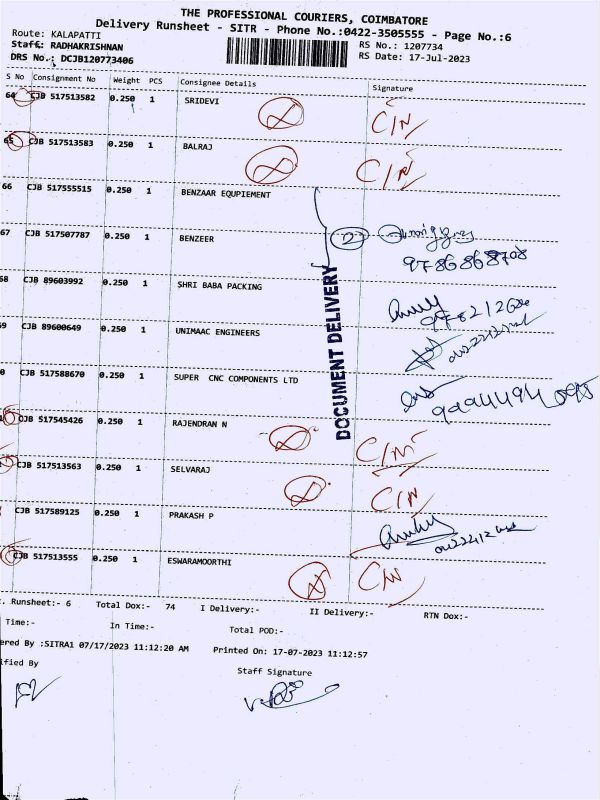 THE PROFESSIONAL COURIERS, COIMBATORE
Delivery Runsheet - SITR - Phone No.:0422-3505555 - Page No.:6
Route: KALAPATTI RS No.: 1207734
Staff: RADHAKRISHNAN RS Date: 17-Jul-2023
DRS No.: DCJB120773406
S No Consignment No Weight PCS Consignee Details Signature
64 CJB 517513582 0.250 1 SRIDEVI C/N
65 CJB 517513583 0.250 1 BALRAJ C/N
66 CJB 517555515 0.250 1 BENZAAR EQUPIEMENT
67 CJB 517507787 0.250 1 BENZEER 2
9786868708
68 CJB 89603992 0.250 1 SHRI BABA PACKING
69 CJB 89600649 0.250 1 UNIMAAC ENGINEERS
DOCUMENT DELIVERY
0 CJB 517588670 0.250 1 SUPER CNC COMPONENTS LTD
CJB 517545426 0.250 1 RAJENDRAN N C/N
CJB 517513563 0.250 1 SELVARAJ C/N
CJB 517589125 0.250 1 PRAKASH P
CJB 517513555 0.250 1 ESWARAMOORTHI C/N
. Runsheet:- 6 Total Dox:- 74 I Delivery:- II Delivery:- RTN Dox:-
Time:- In Time:- Total POD:-
ered By :SITRA1 07/17/2023 11:12:20 AM Printed On: 17-07-2023 11:12:57
ified By Staff Signature